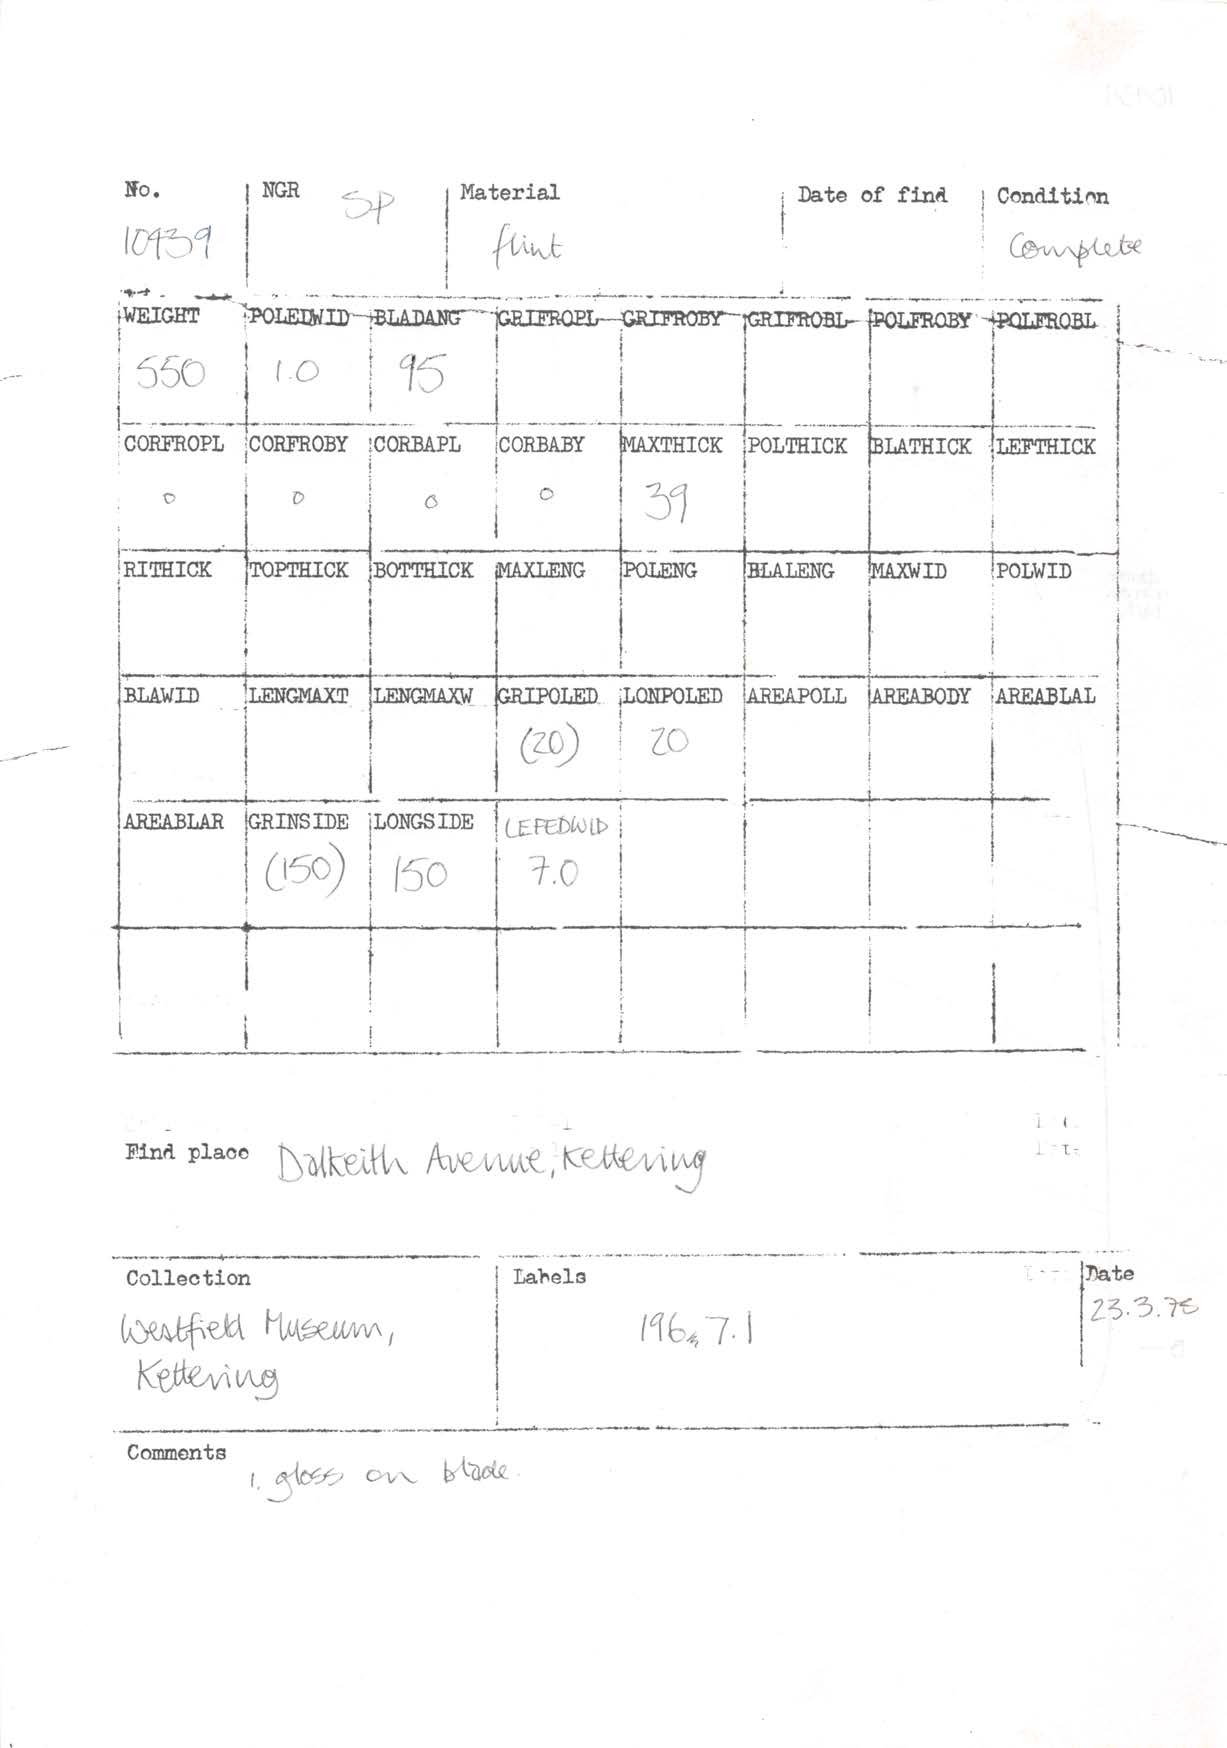 No. NGR SP Material Date of find Condition
10939 flint Complete
WEIGHT POLEDWID BLADANG GRIFROPL GRIFROBY GRIFROBL POLFROBY POLFROBL
550 1.0 95
CORFROPL CORFROBY CORBAPL CORBABY MAXTHICK POLTHICK BLATHICK LEFTHICK
0 0 0 0 39
RITHICK TOPTHICK BOTTHICK MAXLENG POLENG BLALENG MAXWID POLWID
BLAWID LENGMAXT LENGMAXW GRIPOLED LONPOLED AREAPOLL AREABODY AREABLAL
(20) 20
AREABLAR GRINSIDE LONGSIDE LEFEDWID
(150) 150 7.0
Find place Dalkeith Avenue, Kettering
Collection Labels Date
Westfield Museum, 23.3.78
Kettering
Comments
1. gloss on blade.